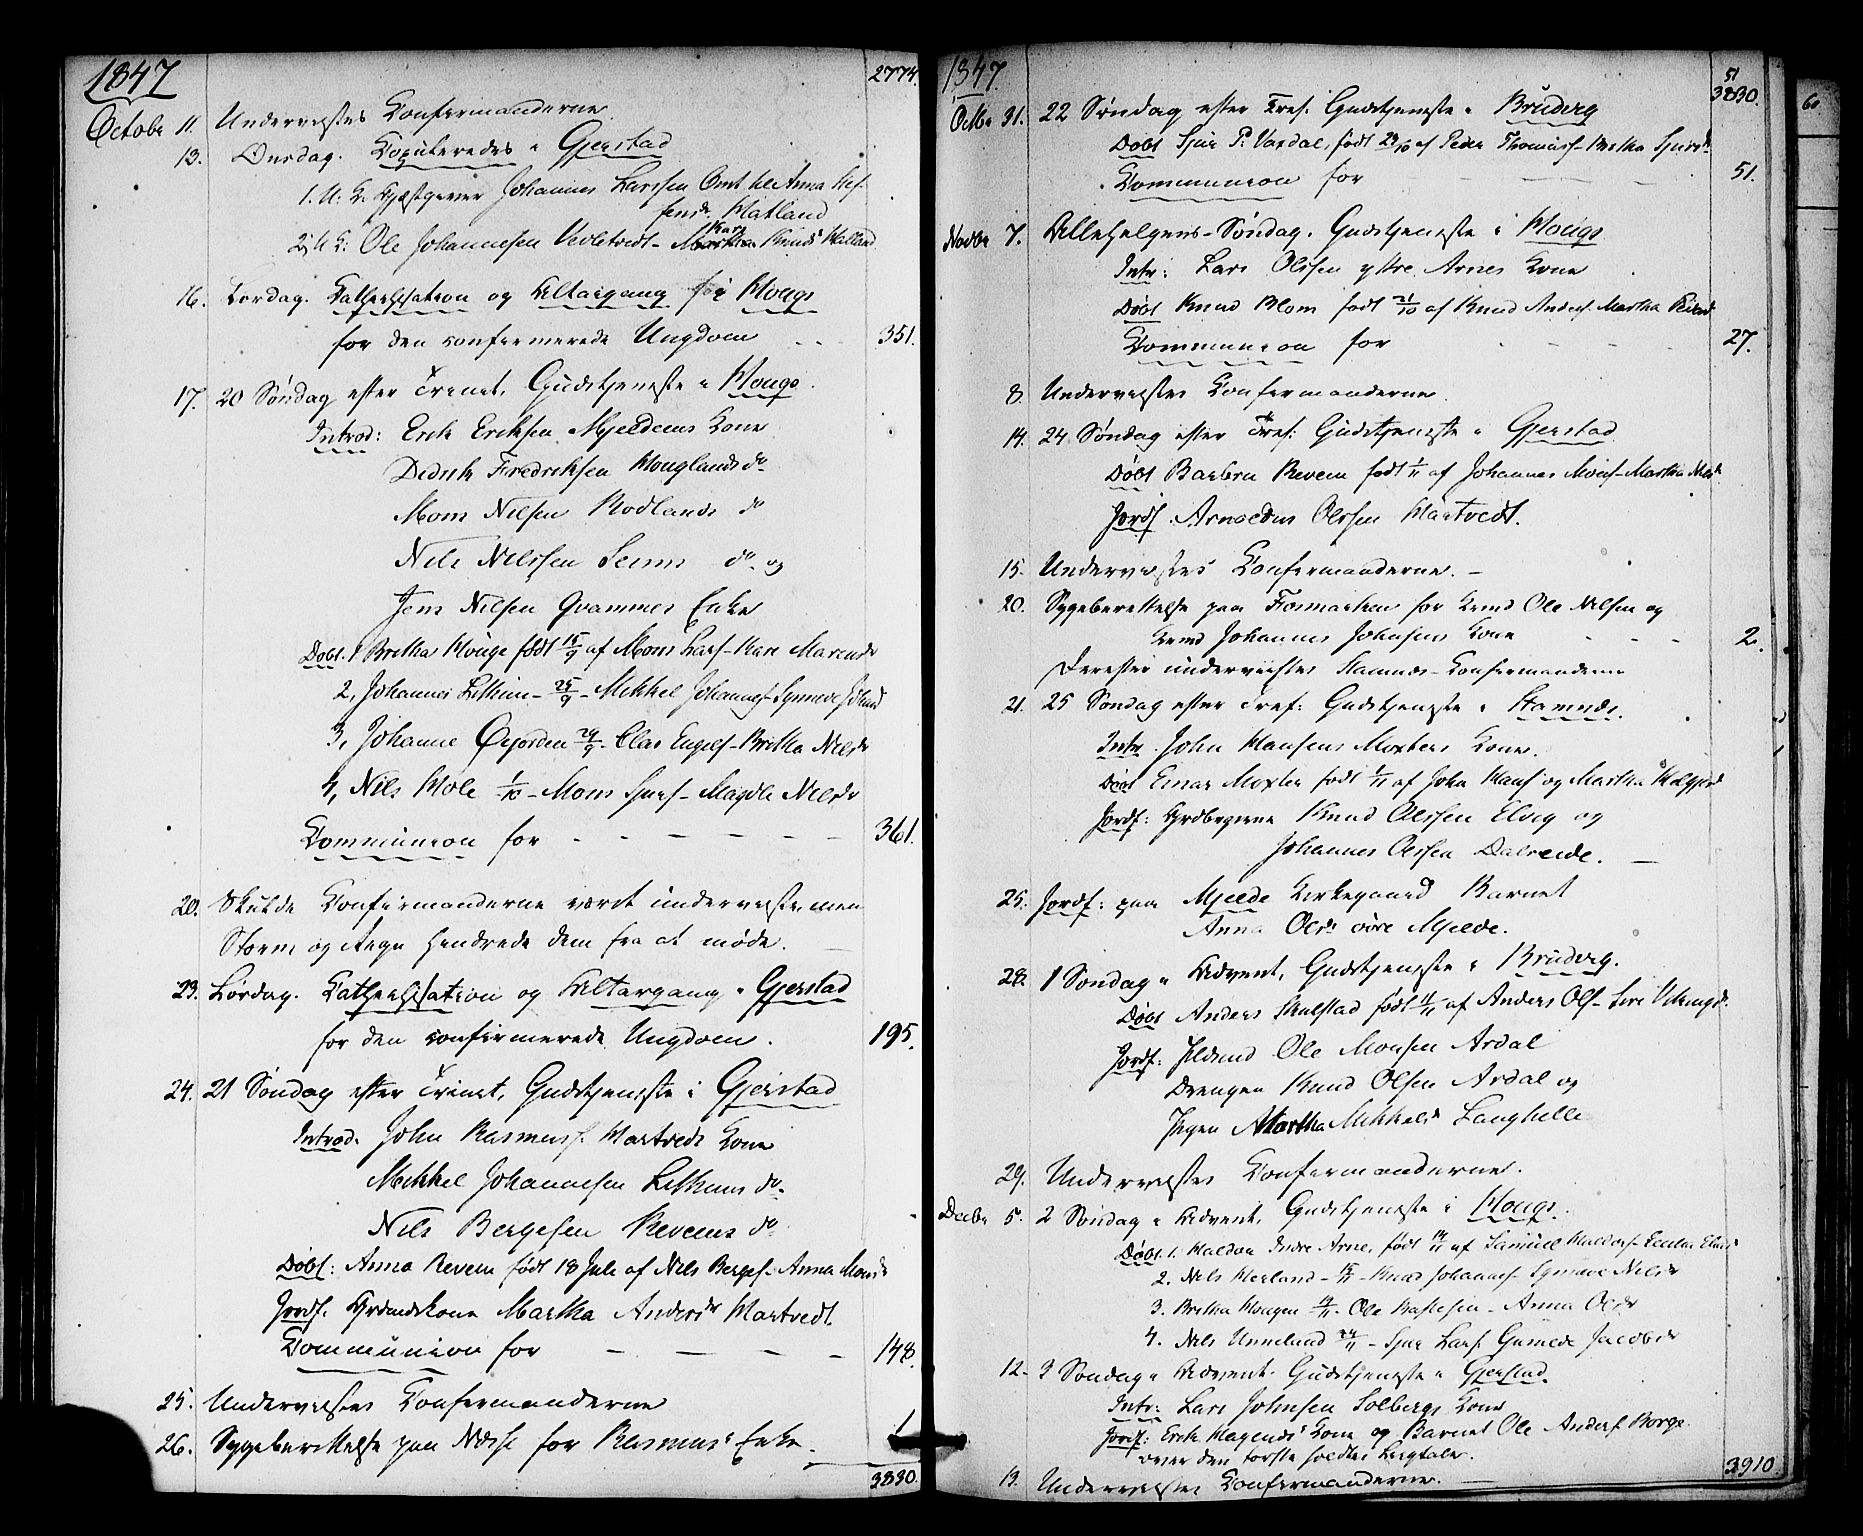 1847 2774.
Octobr 11. Underviistes Confirmanderne.
13. Onsdag. Copuleredes i Gjerstad
1. U: K. Gjæstgiver Johannes Larssen Omt til Anna Stef-
fensdr. Hatland
2, U: K: Ole Johannesen Vevletvedt - Kari Knudsdr Halland
16. Lørdag. Cathechisation og Altargang for Hougs
for den confirmerede Ungdom - - - 351.
17. 20 Søndag efter Trinit. Gudstjeneste i Hougs.
Introd: Erik Eriksen Mjeldems Kone
Didrik Fredriksen Houglands do
Mons Nilsen Rodlands do
Nils Nilssen Seims do og
Jens Nilsen Qvammes Enke
Døbt. 1 Britha Houge født 15/9 af Mons Lars. - Kari Mariusdr
2, Johannes Lethun - 25/9 - Mikkel Johannes. - Synneve
3, Johanne Øvjorden 29/9 - Clas Engels. - Britha Nilsdr
4, Nils Hole 1/10 - Mons Sjurs. - Magdla Nilsdr
Communion for - - - - - - 361.
20. Skulde Confirmanderne været underviiste, men
Storm og Regn hindrede dem fra at møde. -
23. Lørdag. Cathechisation og Altargang i Gjerstad
for den confirmerede Ungdom. 195.
24. 21 Søndag efter Trinit. Gudstjeneste i Gjerstad
Introd. John Rasmuss. Hartveds Kone
Mikkel Johannesen Lethuns do.
Nils Bergesen Reveems do
Døbt: Anna Revem født 18 Juli af Nils Berges. - Anna Monsdr
Jordf. Gaardmdskone Martha Andersdr Hartvedt.
Communion for - - - - 148.
25. Underviistes Confirmanderne
26. Sygeberettelse paa Næse for Rasmus' Enke. 1
3830.
1847. 51
3830.
Octbr 31. 22 Søndag efter Tref. Gudstjeneste i Bruvig
Døbt Sjur P: Vaxdal, født 29/10 af Peder Thomass. - Britha Sjursdr.
Communion for - - - 51.
Novbr 7. Allehelgens-Søndag. Gudstjeneste i Hougs
Intr: Lars Olssen yttre Arnes Kone
Døbt Knud Blom født 21/10 af Knud Anders. Martha
Communion for - - - - 27.
8. Underviistes Confirmanderne.
14. 24 Søndag efter Tref: Gudstjeneste i Gjerstad
Døbt Barbra Revem født 1/11 af Johannes Mons. - Martha Nilsdr
Jordf. Arnoldus Olssen Hartvedt.
15. Underviistes Confirmanderne. -
20. Sygeberettelse paa Fosmarken for Kmd Ole Nilsen og
Kmd Johannes Johnsens Kone - - - 2.
Derefter underviistes Stamnes-Confirmanderne
21. 25 Søndag efter Tref: Gudstjeneste i Stamnes.
Intr. John Hansens Moxters Kone.
Døbt Einar Moxter født 1/11 af John Hans. og Martha
Jordf: Gaardbrugerne Knud Olssen Elvig og
Johannes Olssen Dalseide. -
25. Jordf: paa Mjelde Kirkegaard Barnet
Anna Olsdr. øvre Mjelde.
28. 1 Søndag i Advent, Gudstjeneste i Bruvig.
Døbt Anders Skulstad født 11/11 af Anders Ols. - Siri Vikingsdr.
Jordf: Ildmd Ole Monsen Ardal
Drengen Knud Olsen Ardal og
Pigen Martha Mikkelsdr Langhelle
29. Underviistes Confirmanderne.
Decbr 5. 2 Søndag i Advent. Gudstjeneste i Hougs.
Døbt. 1. Haldor Indre Arne, født 14/11 af Samuel Haldors.
2. Nils Herland - 15/11 - Knud Johannes. - Synneve Nilsdr
3. Britha Hougen 19/11 - Ole - Anna Olsdr
4. Nils Unneland 24/11 - Sjur Lars. Gunilde Jacobsdr
12. 3 Søndag i Advent. Gudstjeneste i Gjerstad.
Intr: Lars Johnsen Solbergs Kone
Jordf: Erik Hagenes' Kone og Barnet Ole Anders. Borge.
over den første holdtes Liigtale.
13. Underviistes Confirmanderne. - 3910
60